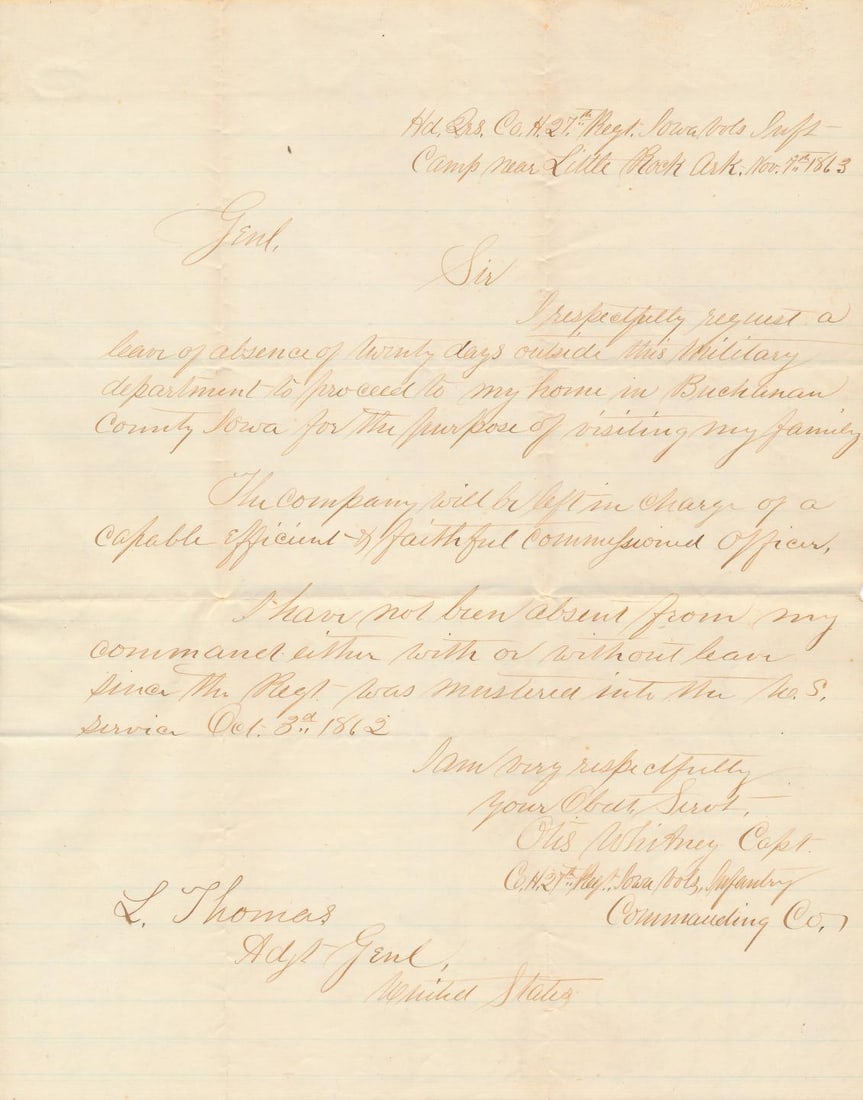 Hd. Qrs. Co. H. 27th Regt. Iowa Vols Inft
Camp near Little Rock Ark. Nov. 9th 1863
Genl.
Sir
I respectfully request a
leave of absence of twenty days outside this Military
department to proceed to my home in Buchanan
County Iowa for the purpose of visiting my family
The company will be left in charge of a
capable efficient & faithful commissioned officer.
I have not been absent from my
command either with or without leave
since the Regt was mustered into the U.S.
service Oct. 3d 1862
I am very respectfully
your Obedt. Servt.
Otis Whitney Capt.
Co. H. 27th Regt. Iowa Vols. Infantry
Commanding Co.
L. Thomas
Adgt Genl,
United States